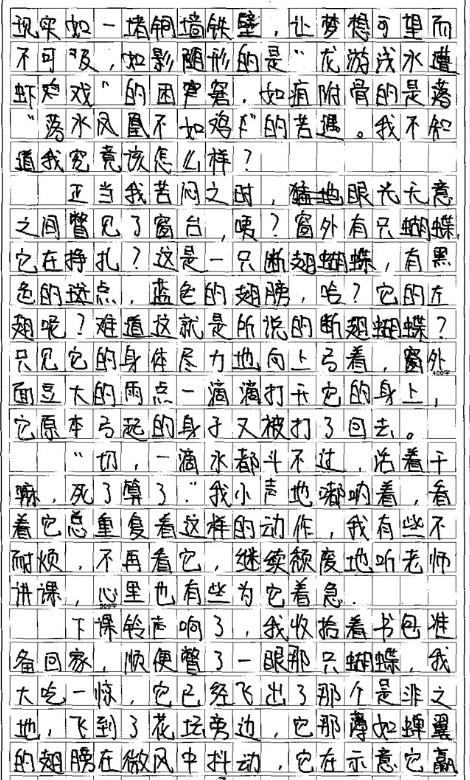 现实如一堵铜墙铁壁，让梦想可望而
不可及，如影随形的是“龙游浅水遭
虾戏”的困窘，如疽附骨的是落
“落水凤凰不如鸡”的苦遇。我不知
道我究竟该怎么样？
正当我苦闷之时，眼光无意
之间瞥见了窗台，咦？窗外有只蝴蝶，
它在挣扎？这是一只断翅蝴蝶，有黑
色的斑点，蓝色的翅膀，哈？它的左
翅呢？难道这就是所说的断翅蝴蝶？
只见它的身体尽力地向上弓着，窗外
面豆大的雨点一滴滴打于它的身上，
它原本弓起的身子又被打了回去。
“切，一滴水都斗不过，活着干
嘛，死了算了。”我小声地嘟呐着，看
着它总重复着这样的动作，我有些不
耐烦，不再看它，继续颓废地听老师
讲课，心里也有些为它着急.
下课铃声响了，我收拾着书包准
备回家，顺便瞥了一眼那只蝴蝶，我
大吃一惊，它已经飞出了那个是非之
地，飞到了花坛旁边，它那薄如蝉翼
的翅膀在微风中抖动，它在示意它赢